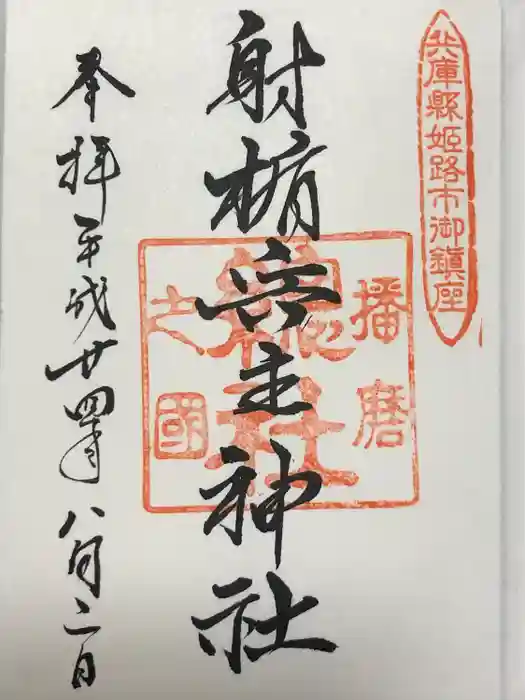 兵庫縣姫路市御鎮座
射楯兵主神社
播磨
総社
之國
奉拝 平成廿四年八月二日